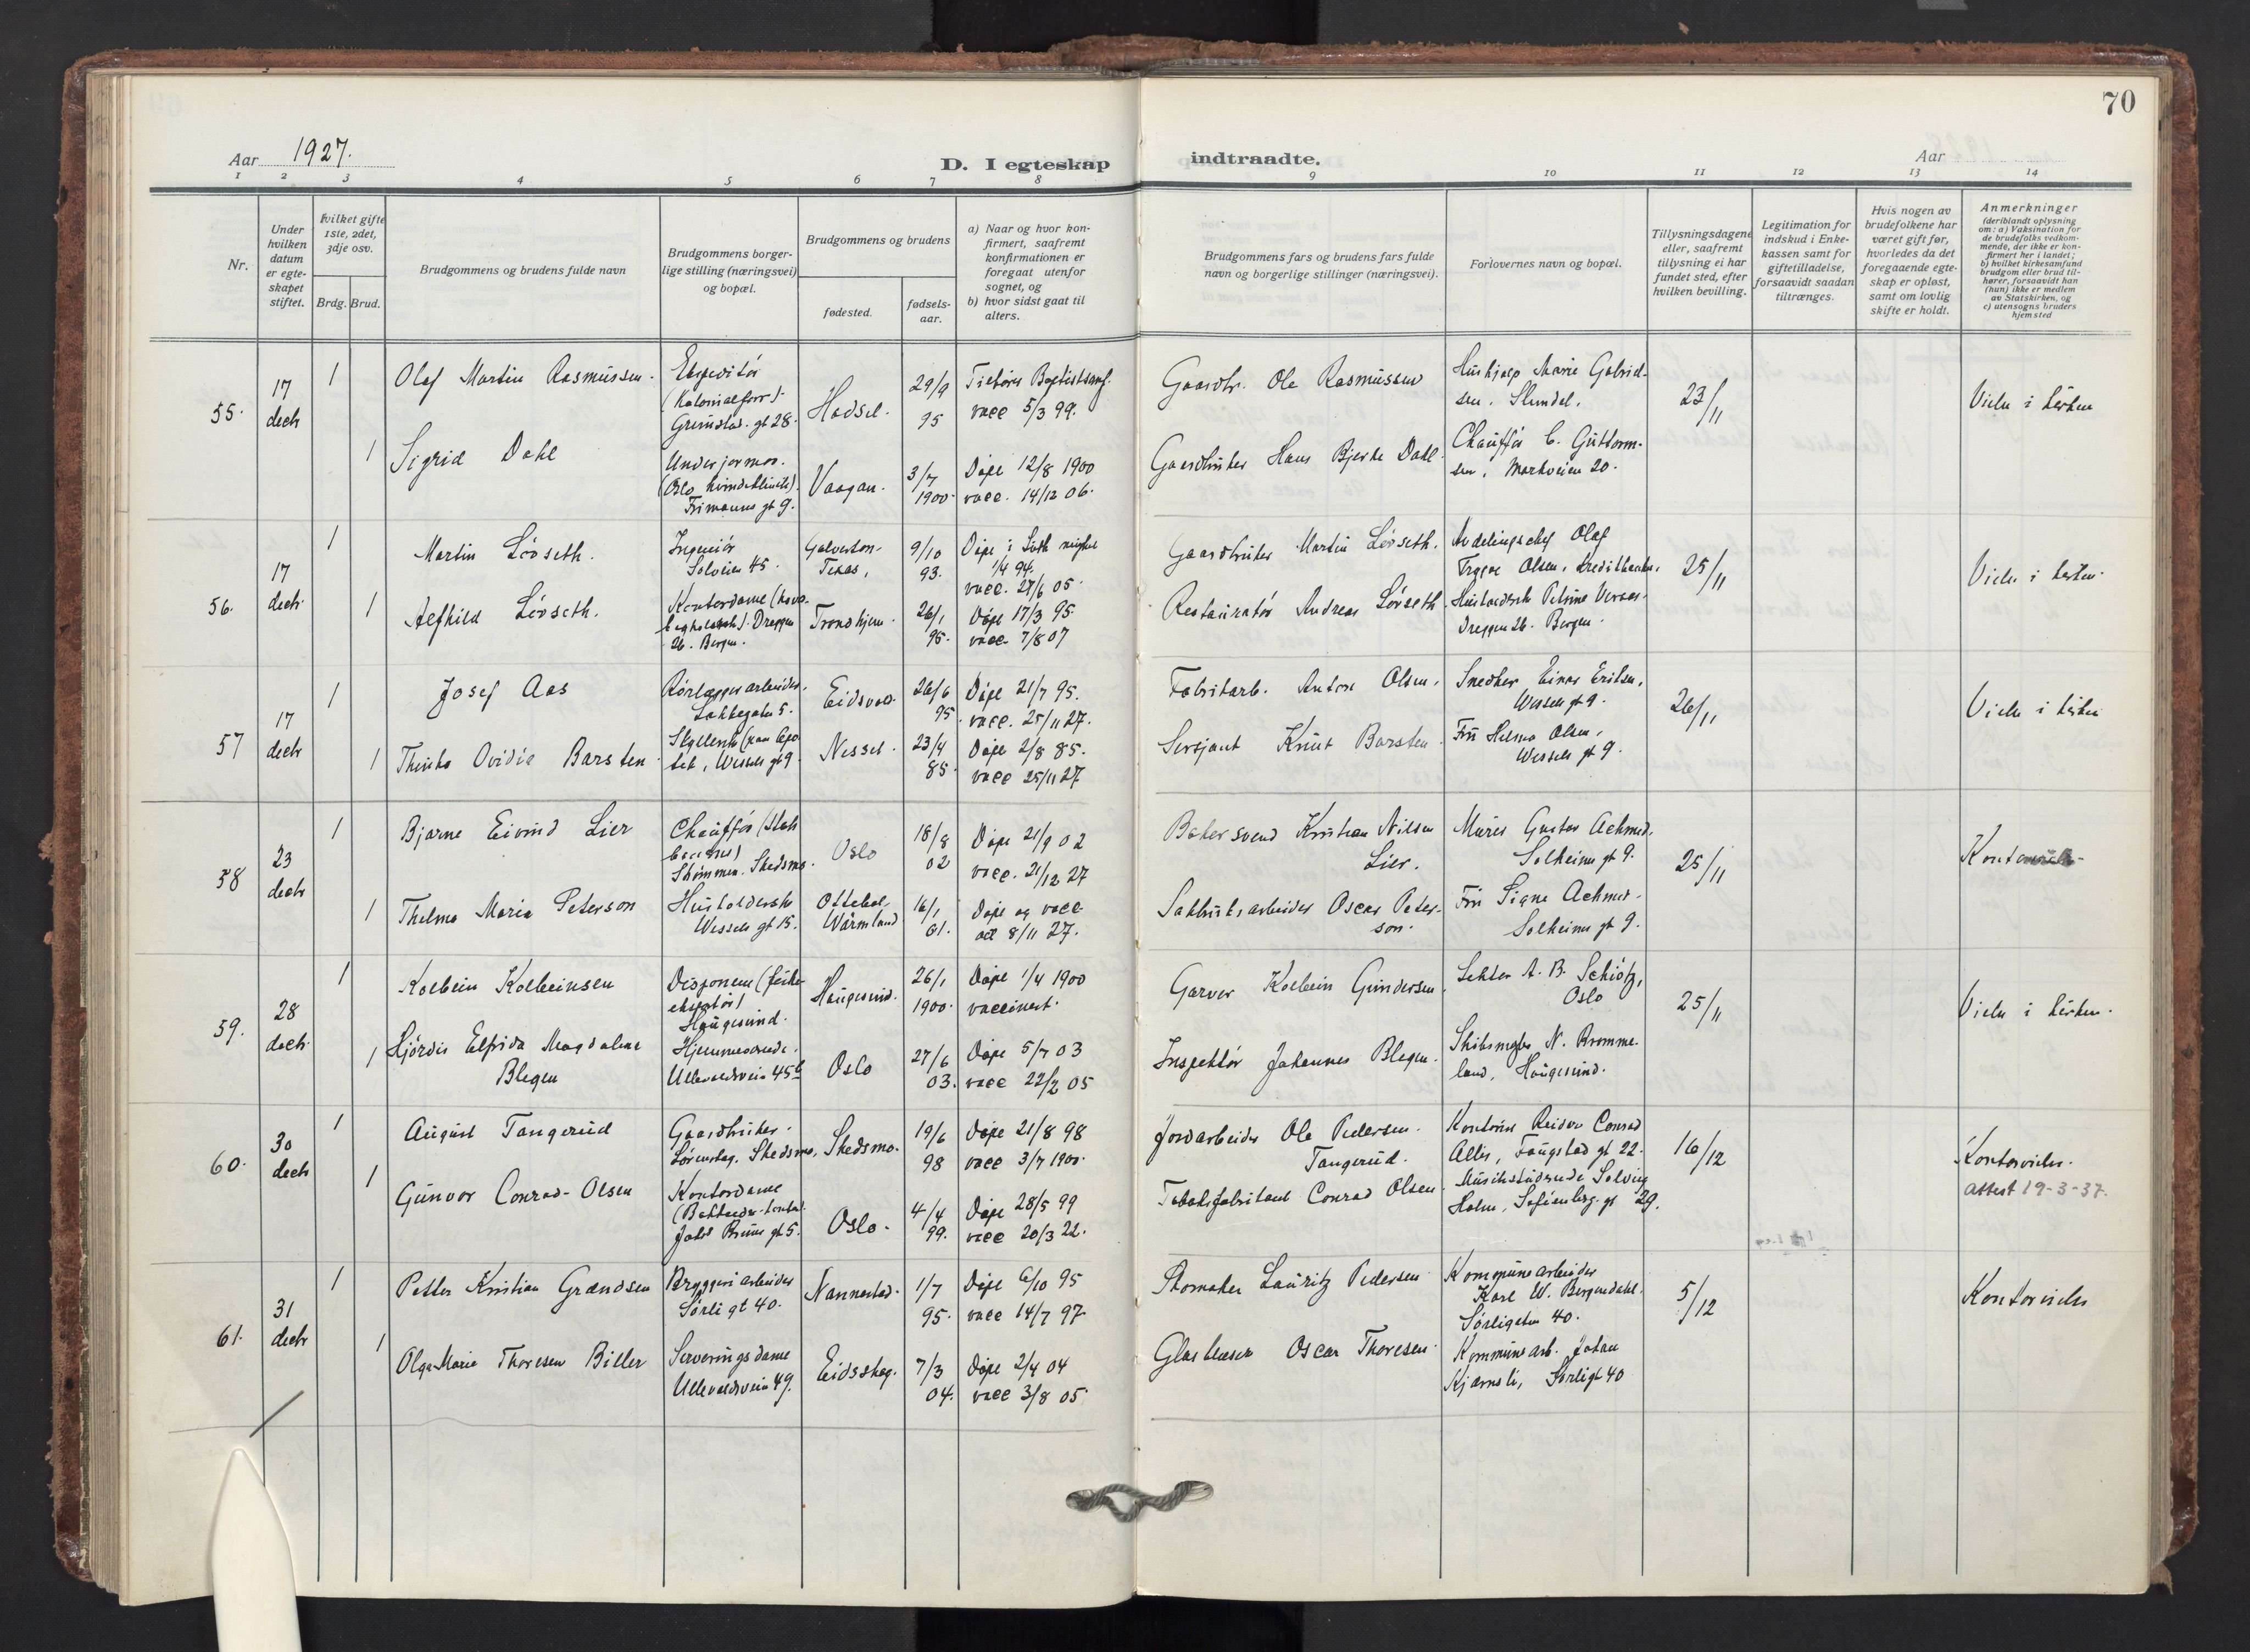 70
Aar 1927.
D. I egteskap indtraadte.
Aar
1 2 3 4 5 6 7 8 9 10 11 12 13 14
Nr.
Under
hvilken
datum
er egte-
skapet
stiftet.
Hvilket gifte
1ste, 2det,
3dje osv.
Brdg. Brud.
Brudgommens og brudens fulde navn
Brudgommens borger-
lige stilling (næringsvei)
og bopæl.
Brudgommens og brudens
fødested.
fødsels-
aar.
a) Naar og hvor kon-
firmert, saafremt
konfirmationen er
foregaat utenfor
sognet, og
b) hvor sidst gaat til
alters.
Brudgommens fars og brudens fars fulde
navn og borgerlige stillinger (næringsvei).
Forlovernes navn og bopæl.
Tillysningsdagene
eller, saafremt
tillysning ei har
fundet sted, efter
hvilken bevilling.
Legitimation for
indskud i Enke-
kassen samt for
giftetilladelse,
forsaavidt saadan
tiltrænges.
Hvis nogen av
brudefolkene har
været gift før,
hvorledes da det
foregaaende egte-
skap er opløst,
samt om lovlig
skifte er holdt.
Anmerkninger
(deriblandt oplysning
om: a) Vaksination for
de brudefolks vedkom-
mende, der ikke er kon-
firmert her i landet;
b) hvilket kirkesamfund
brudgom eller brud til-
hører, forsaavidt han
(hun) ikke er medlem
av Statskirken, og
c) utensogns bruders
hjemsted
55.
17
decbr
1
Olaf Martin Rasmussen.
Ekspeditør
(Kolonialforr.).
Grimstad. gt 28.
Hadsel.
29/9
95
vacc 5/3 99.
Gaardbr. Ole Rasmussen
Hushjælp Marie Gabriel-
sen,
23/11
Vielse i kirken
1
Sigrid Dahl
Underjormor.
(Oslo kvindeklinik).
Frimanns gt 9.
Vaagan.
3/7
1900.
Døpt 12/8 1900
vacc. 14/12 06.
Gaardbruker Hans Bjerke Dahl.
Chauffør C. Guttorm-
sen, Markveien 20.
56.
17
decbr.
1
Martin Løvseth.
Ingeniør
Solveien 45.
Galveston.
Texas,
9/10
93.
Døpt i Luth
1/4 94.
vacc. 27/6 05.
Gaardbruker Martin Løvseth.
Avdelingschef Olaf
Trygve Olsen, Kreditbanken,
25/11
Vielse i kirken.
1
Alfhild Løvseth.
Kontordame
Dreggen
26. Bergen.
Trondhjem.
26/1
95.
Døpt 17/3 95.
vacc. 7/8 07
Restauratør Andreas Løvseth.
Husholderske Petrine
Dreggen 26. Bergen.
57
17
decbr
1
Josef Aas
Rørlæggerarbeider.
Lakkegaten 5.
Eidsvold.
26/6
95.
Døpt 21/7 95.
vacc. 25/11 27.
Fabrikarb. Anton Olsen.
Snedker Einar Eriksen,
Wessels gt 9.
26/11
Vielse i kirken
1
Thinka Ovidia Barsten
Wessels gt 9.
Nesset.
23/4
85.
Døpt 2/8 85.
vacc 25/11 27
Sersjant Knut Barsten.
Fru Helma Olsen,
Wessels gt 9.
58
23
decbr
1
Bjarne Eivind Lier
Chauffør
Strømmen. Skedsmo.
Oslo
18/8
02
Døpt 21/9 02
vacc. 21/12 27
Bakersvend Kristian Nilsen
Lier.
Murer Gustav Achmed.
Solheims gt 9.
25/11
1
Thelma Maria Peterson
Husholderske
Wessels gt 15.
Wärmland
16/1
01.
Døpt og vacc.
8/11 27.
Sakbruksarbeider Oscar Peter-
son.
Fru Signe Achmed.
Solheims gt 9.
59.
28
decbr.
1
Kolbein Kolbeinsen
Disponent
Haugesund.
Haugesund.
26/1
1900.
Døpt 1/4 1900
vaccinert.
Garver Kolbein Gundersen.
Lektor A. B. Schiøtz,
Oslo
25/11
Vielse i kirken.
1
Hjørdis Elfrida Magdalene
Blegen
Hjemmeværende.
Ullevaalsveien 45b
Oslo
27/6
03.
Døpt 5/7 03
vacc 22/2 05
Inspektør Johannes Blegen.
Skibsmegler N. Bromme-
land, Haugesund.
60.
30
decbr
1
August Tangerud
Gaardbruker.
Skedsmo.
Skedsmo.
19/6
98
Døpt 21/8 98
vacc 3/7 1900.
Jordarbeider Ole Pedersen.
Tangerud.
Kontorist Reidar Conrad
Faugstad gt 22.
16/12
Kontorvielse.
Attest 19-3-37.
1
Gunvor Conrad-Olsen
Kontordame
Jakob Bruns gt 5.
Oslo.
4/4
99.
Døpt 28/5 99
vacc 20/3 22.
Tobaksfabrikant Conrad Olsen.
Musikstuderende Solveig
Holm, Sofienberg. gt 29.
61.
31
decbr
1
Petter Kristian Grændsen
Bryggeriarbeider
Sørli gt 40.
Nannestad.
1/7
95.
Døpt 6/10 95
vacc 14/7 97.
Skomaker Lauritz Pedersen.
Kommunearbeider
Karl W. Bergendahl.
Sørligaten 40.
5/12
Kontorvielse
1
Olga Marie Thoresen Biller
Serveringsdame
Ullevaalsveien 49.
Eidskog.
7/3
04.
Døpt 2/4 04
vacc 3/8 05.
Glasblæser Oscar Thoresen.
Kommunearb. Johan
Kjærnsli, Sørligt 40